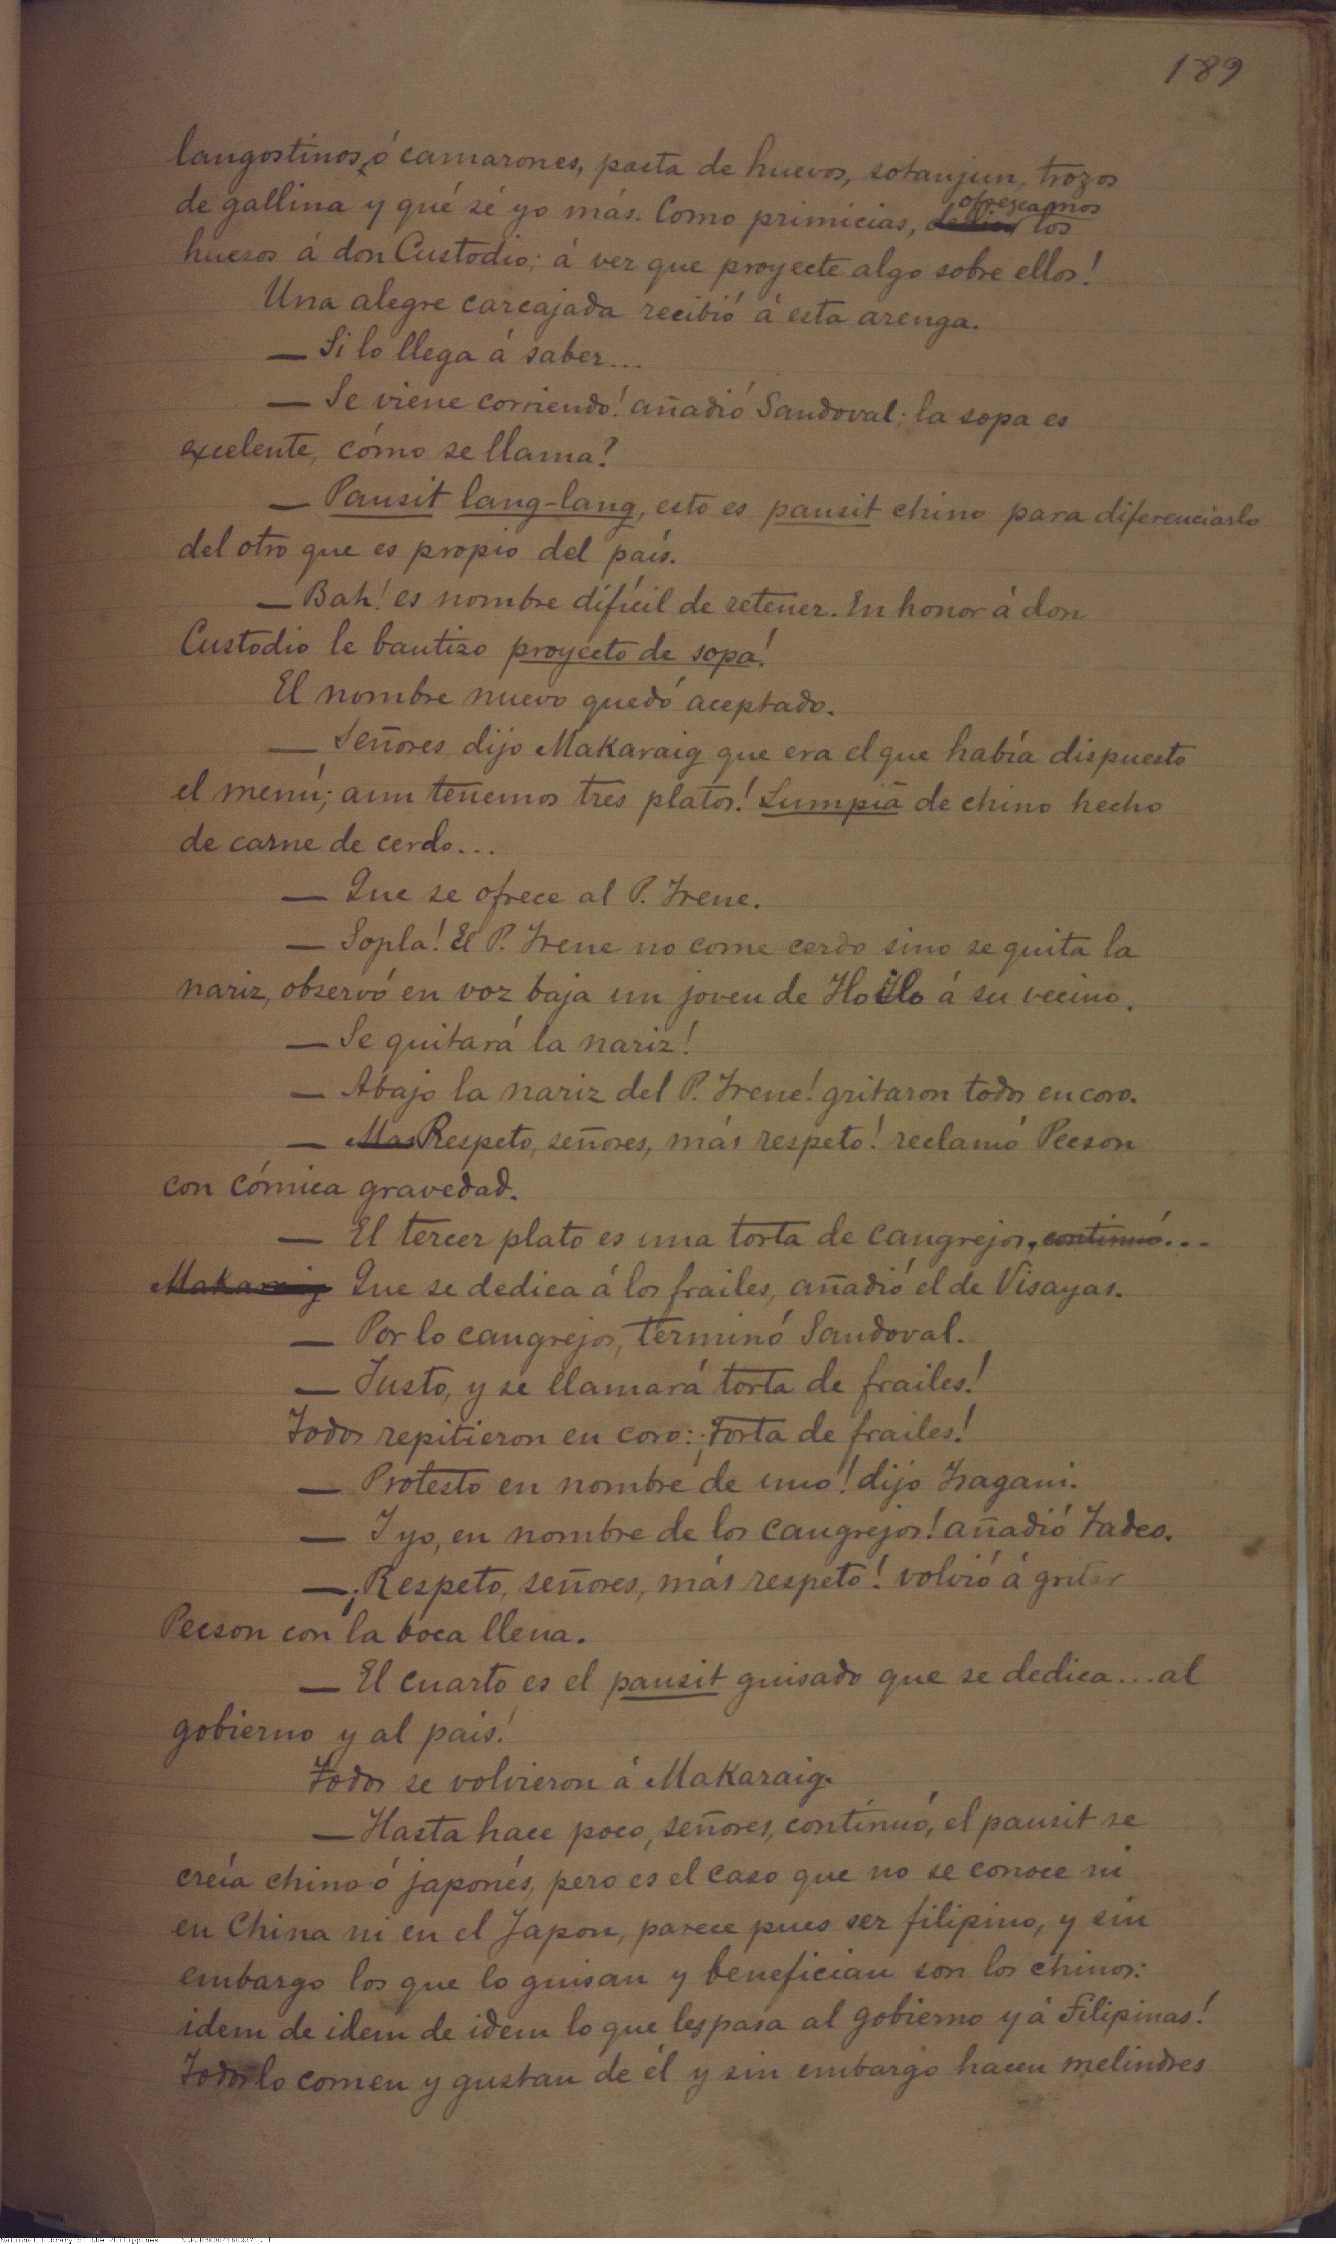 189
langostinos, ó camarones, pasta de huevos, sotanjun, trozos
de gallina y qué sé yo más. Como primicias, ofrezcamos los
huesos á don Custodio; á ver que proyecte algo sobre ellos!
Una alegre carcajada recibió á esta arenga.
— Si lo llega á saber...
— Se viene corriendo! añadió Sandoval; la sopa es
excelente, cómo se llama?
— Pansit lang-lang, esto es pansit chino para diferenciarlo
del otro que es propio del país.
— Bah! es nombre difícil de retener. En honor á don
Custodio le bautizo proyecto de sopa!
El nombre nuevo quedó aceptado.
— Señores dijo Makaraig que era el que había dispuesto
el menú; aun tenemos tres platos! Lumpiâ de chino hecho
de carne de cerdo...
— Que se ofrece al P. Irene.
— Sopla! El P. Irene no come cerdo sino se quita la
nariz, observó en voz baja un joven de Iloilo á su vecino.
— Se quitará la nariz!
— Abajo la nariz del P. Irene! gritaron todos en coro.
— Mas Respeto, señores, más respeto! reclamó Pecson
con cómica gravedad.
— El tercer plato es una torta de cangrejos, continuó...
Makaraig Que se dedica á los frailes, añadió el de Visayas.
— Por lo cangrejos, terminó Sandoval.
— Justo, y se llamará torta de frailes!
Todos repitieron en coro: ¡Torta de frailes!
— Protesto en nombre de uno! dijo Isagani.
— Y yo, en nombre de los cangrejos! añadió Tadeo.
— ¡Respeto, señores, más respeto! volvió á gritar
Pecson con la boca llena.
— El cuarto es el pansit guisado que se dedica... al
gobierno y al pais!
Todos se volvieron á Makaraig.
— Hasta hace poco, señores, continuó, el pansit se
creía chino ó japonés, pero es el caso que no se conoce ni
en China ni en el Japon, parece pues ser filipino, y sin
embargo los que lo guisan y benefician son los chinos:
idem de idem de idem lo que les pasa al gobierno y á Filipinas!
Todos lo comen y gustan de él y sin embargo hacen melindres